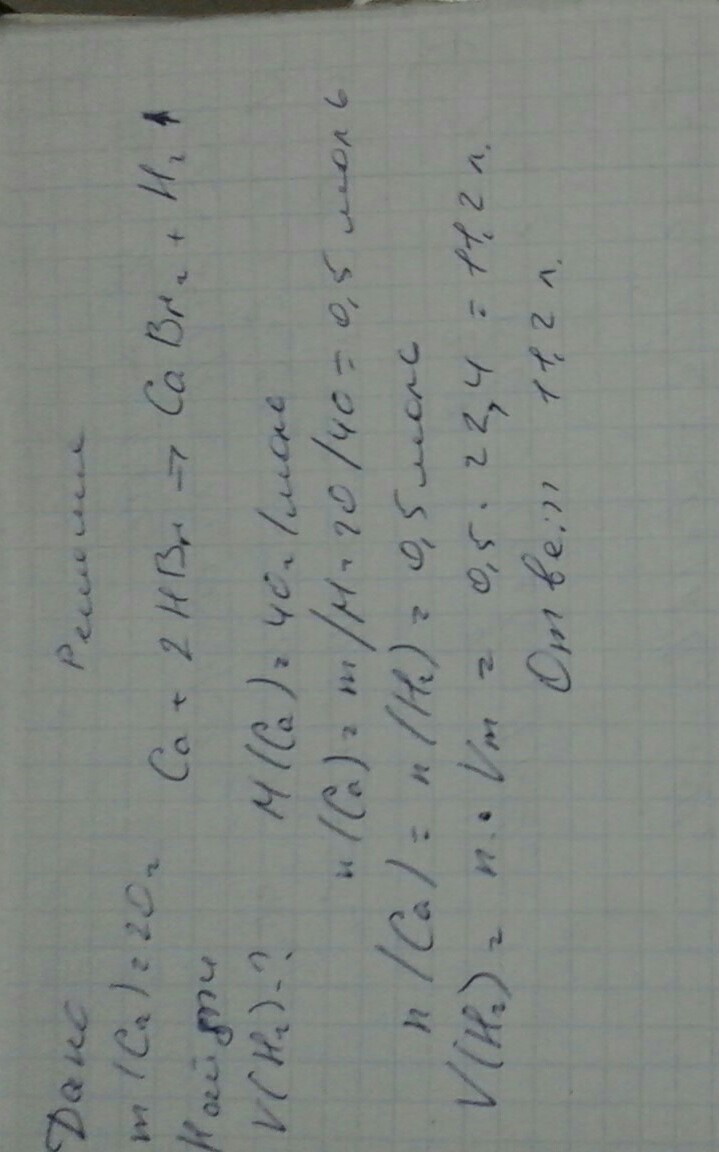 Дано
m(Ca)=20г
Найти
V(H₂)-?
Решение
Ca + 2HBr → CaBr₂ + H₂↑
M(Ca)=40г/моль
n(Ca)=m/M=20/40=0,5 моль
n(Ca)=n(H₂)=0,5 моль
V(H₂)=n·Vm=0,5·22,4=11,2 л.
Ответ: 11,2 л.